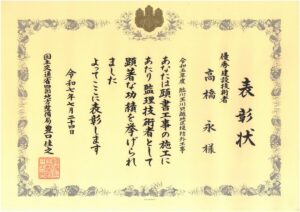 表彰状
優秀建設技術者
高橋 永 様
あなたは頭書工事の施工に
あたり監理技術者として
顕著な功績を挙げられ
ました
よってここに表彰します
令和七年七月二十四日
国土交通省四国地方整備局長 豊口佳之